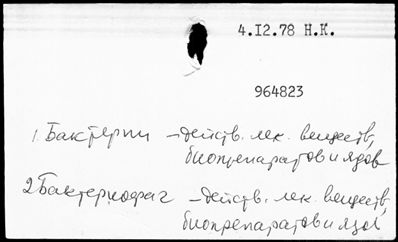 4.I2.78 Н.К.
964823
1. Бактерии – действ. лек. веществ,
биопрепаратов и ядов
2. Бактериофаг – действ. лек. веществ,
биопрепаратов и ядов